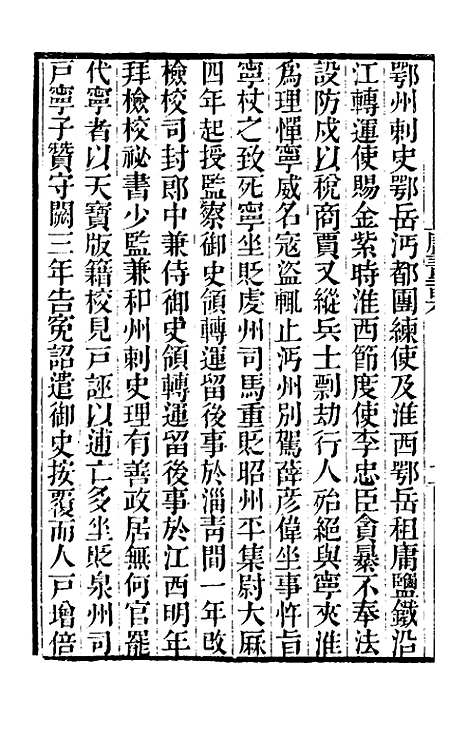 鄂州刺史鄂岳沔都團練使及淮西鄂岳租庸鹽鐵沿
江轉運使賜金紫時淮西節度使李忠臣貪暴不奉法
設防戍以稅商賈又縱兵士剽劫行人殆絕與寧夾淮
爲理憚寧威名寇盜輒止沔州別駕薛彥偉坐事忤旨
寧杖之致死寧坐貶虔州司馬重貶昭州平集尉大厤
四年起授監察御史領轉運留後事於淄青間一年改
檢校司封郎中兼侍御史領轉運留後事於江西明年
拜檢校祕書少監兼和州刺史理有善政居無何官罷
代寧者以天寶版籍校見戶誣以逋亡多坐貶泉州司
戶寧子贊守闕三年告冤詔遣御史按覆而人戶增倍